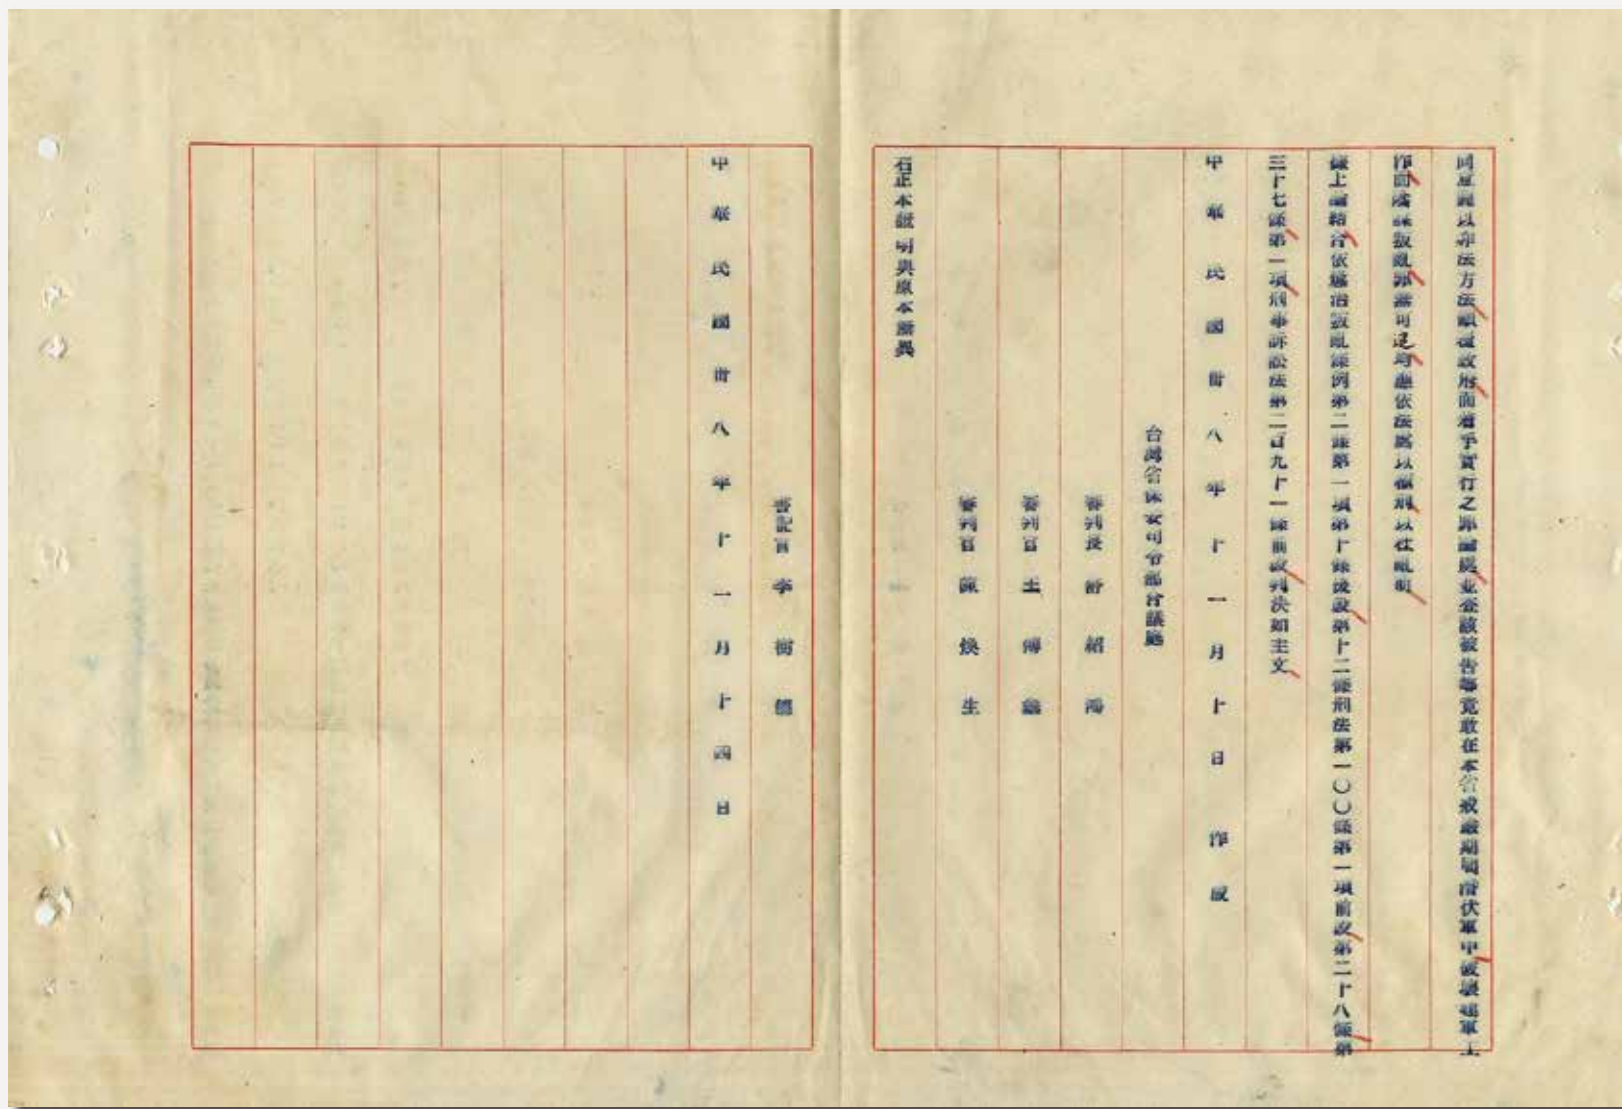 同互難以非法方法顛覆政府而着手實行之罪論處並查該被告等竟敢在本省戒嚴期間潛伏軍中破壞建軍工
作圖謀叛亂罪無可逭均應依法處以極刑以
據上論結合依懲治叛亂條例第二條第一項第十條後段第十二條刑法第一〇〇條第一項前段第二十八條第
三十七條第一項刑事訴訟法第二百九十一條前段判決如主文
中華民國卅八年十一月十日作成
台灣省保安司令部合議庭
審判長
審判官
審判官陳煥生
右正本證明與原本無異
書記官李
中華民國卅八年十一月十四日